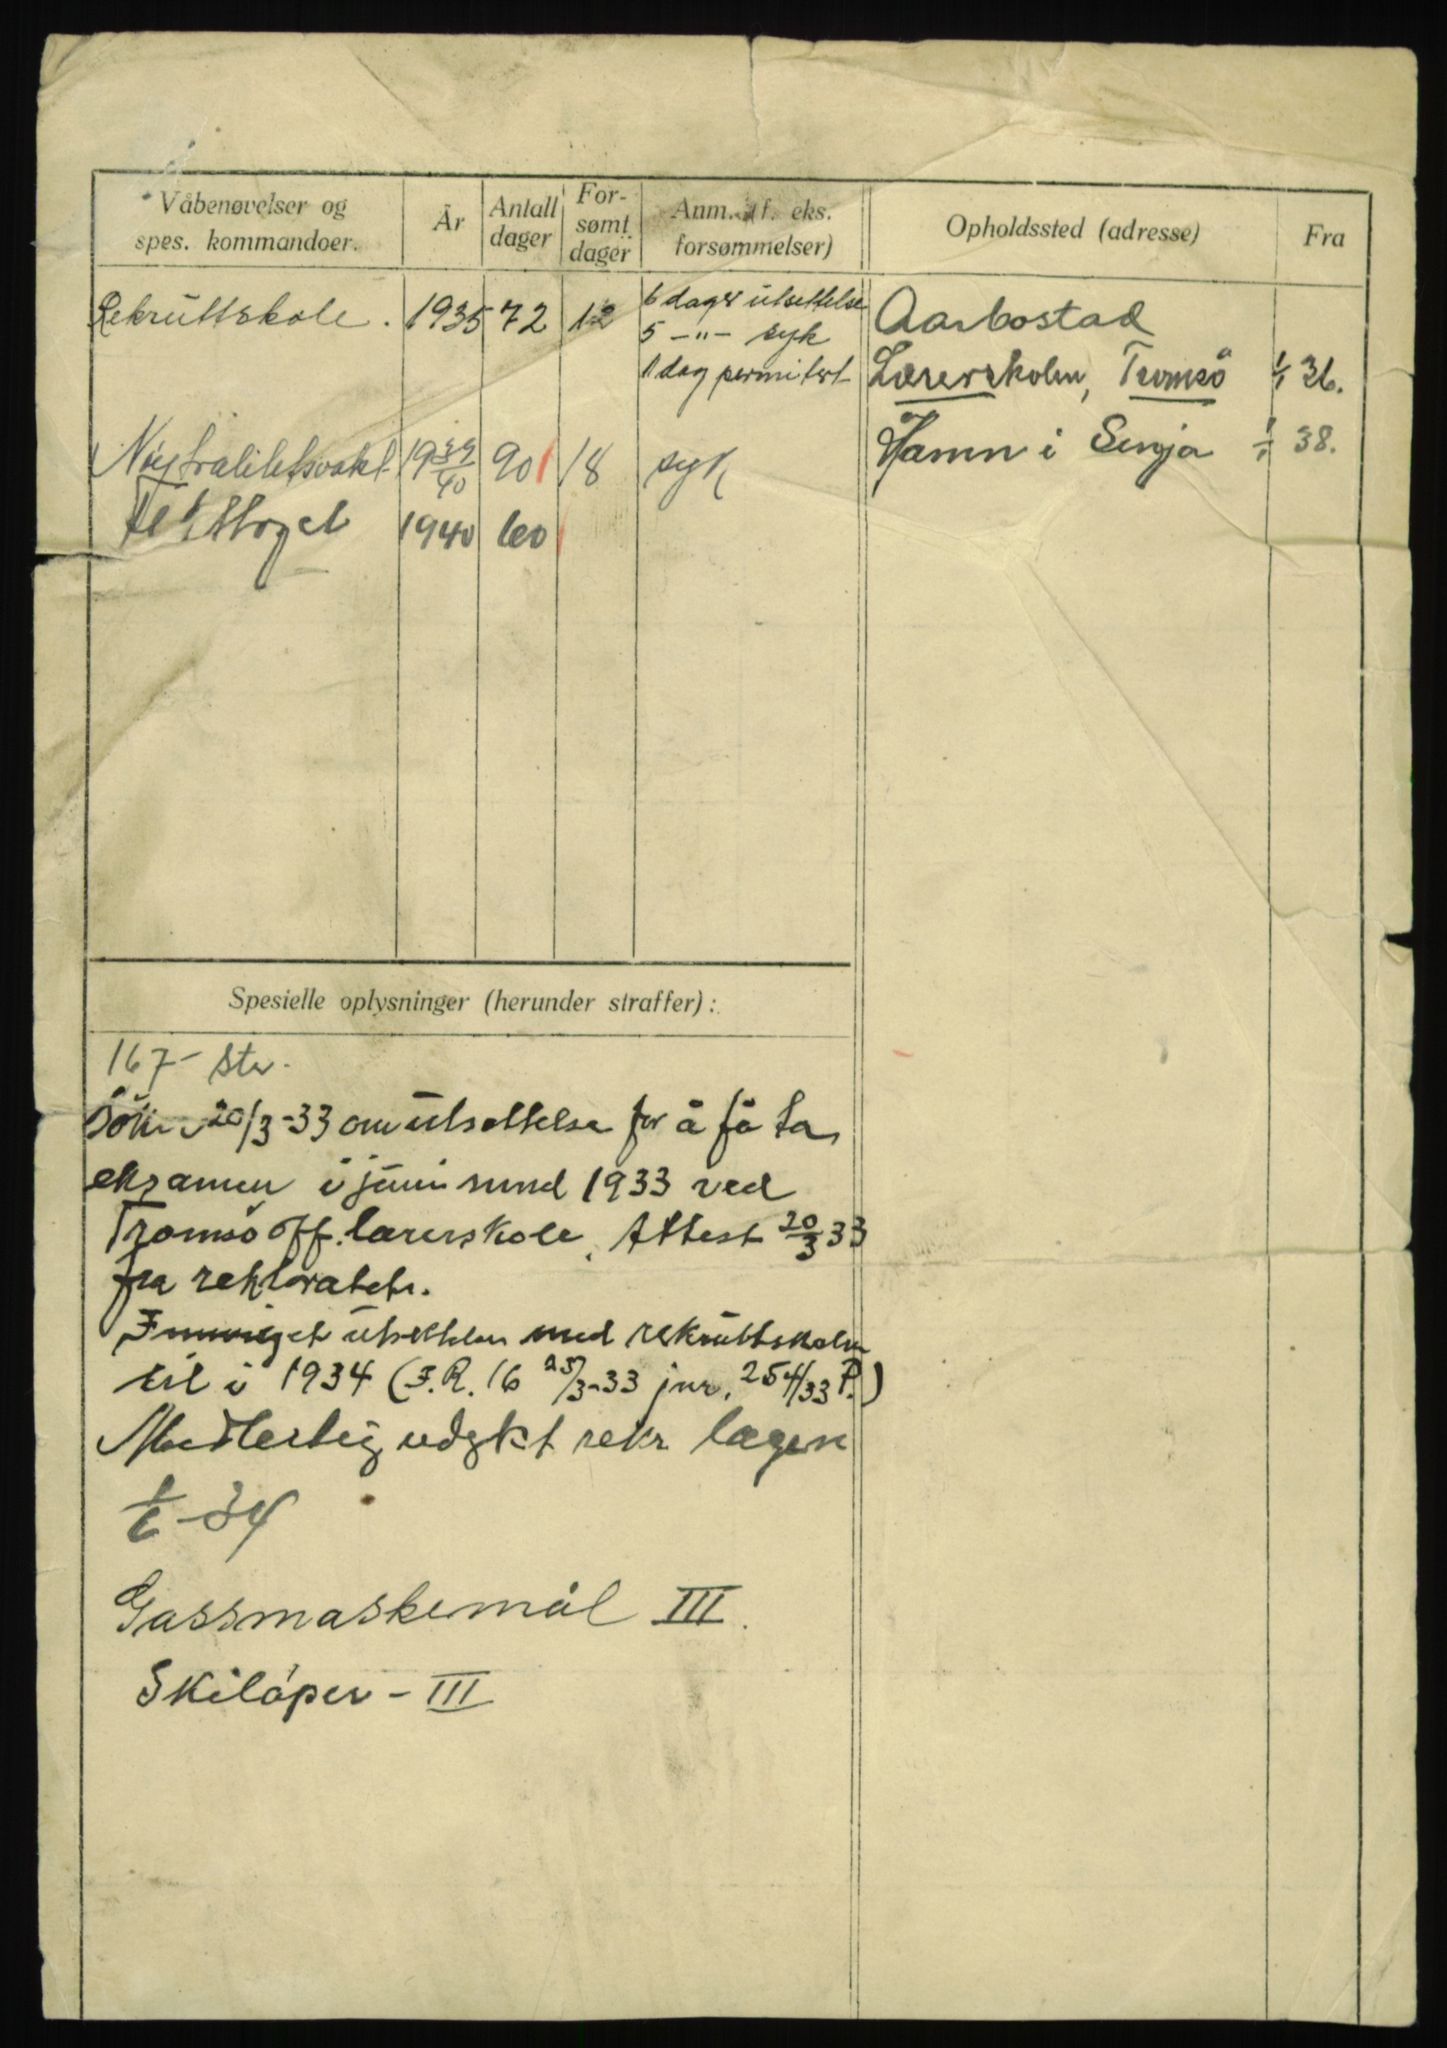 Våbenøvelser og
spes. kommandoer.
År
Antall
dager
For-
sømt
dager
Anm. (f. eks.
forsømmelser)
Opholdssted (adresse)
Fra
Rekruttskole. 1935 72 12
6 dager utsettelse
5 -"- syk
1 dag permitert
Aarbostad
Lærerskolen, Tromsö 1/1 36.
Hamn i Senja 1/1 38.
Nøytralitetsvakt 1939/40 90 18 syk
Felttoget 1940 60
Spesielle oplysninger (herunder straffer):
167 - Str.
Söker 20/3-33 om utsettelse for å få ta
eksamen i juni mnd 1933 ved
Tromsö off. lærerskole. Attest 20/3 33
fra rektoratet.
Innvilget utsettelse med rekruttskolen
til i 1934 (I.R. 16 25/3-33 jnr. 254/33 P.)
Midlertidig udykt rekr lægen
1/6-34
Gassmaskemål III.
Skilöper - III